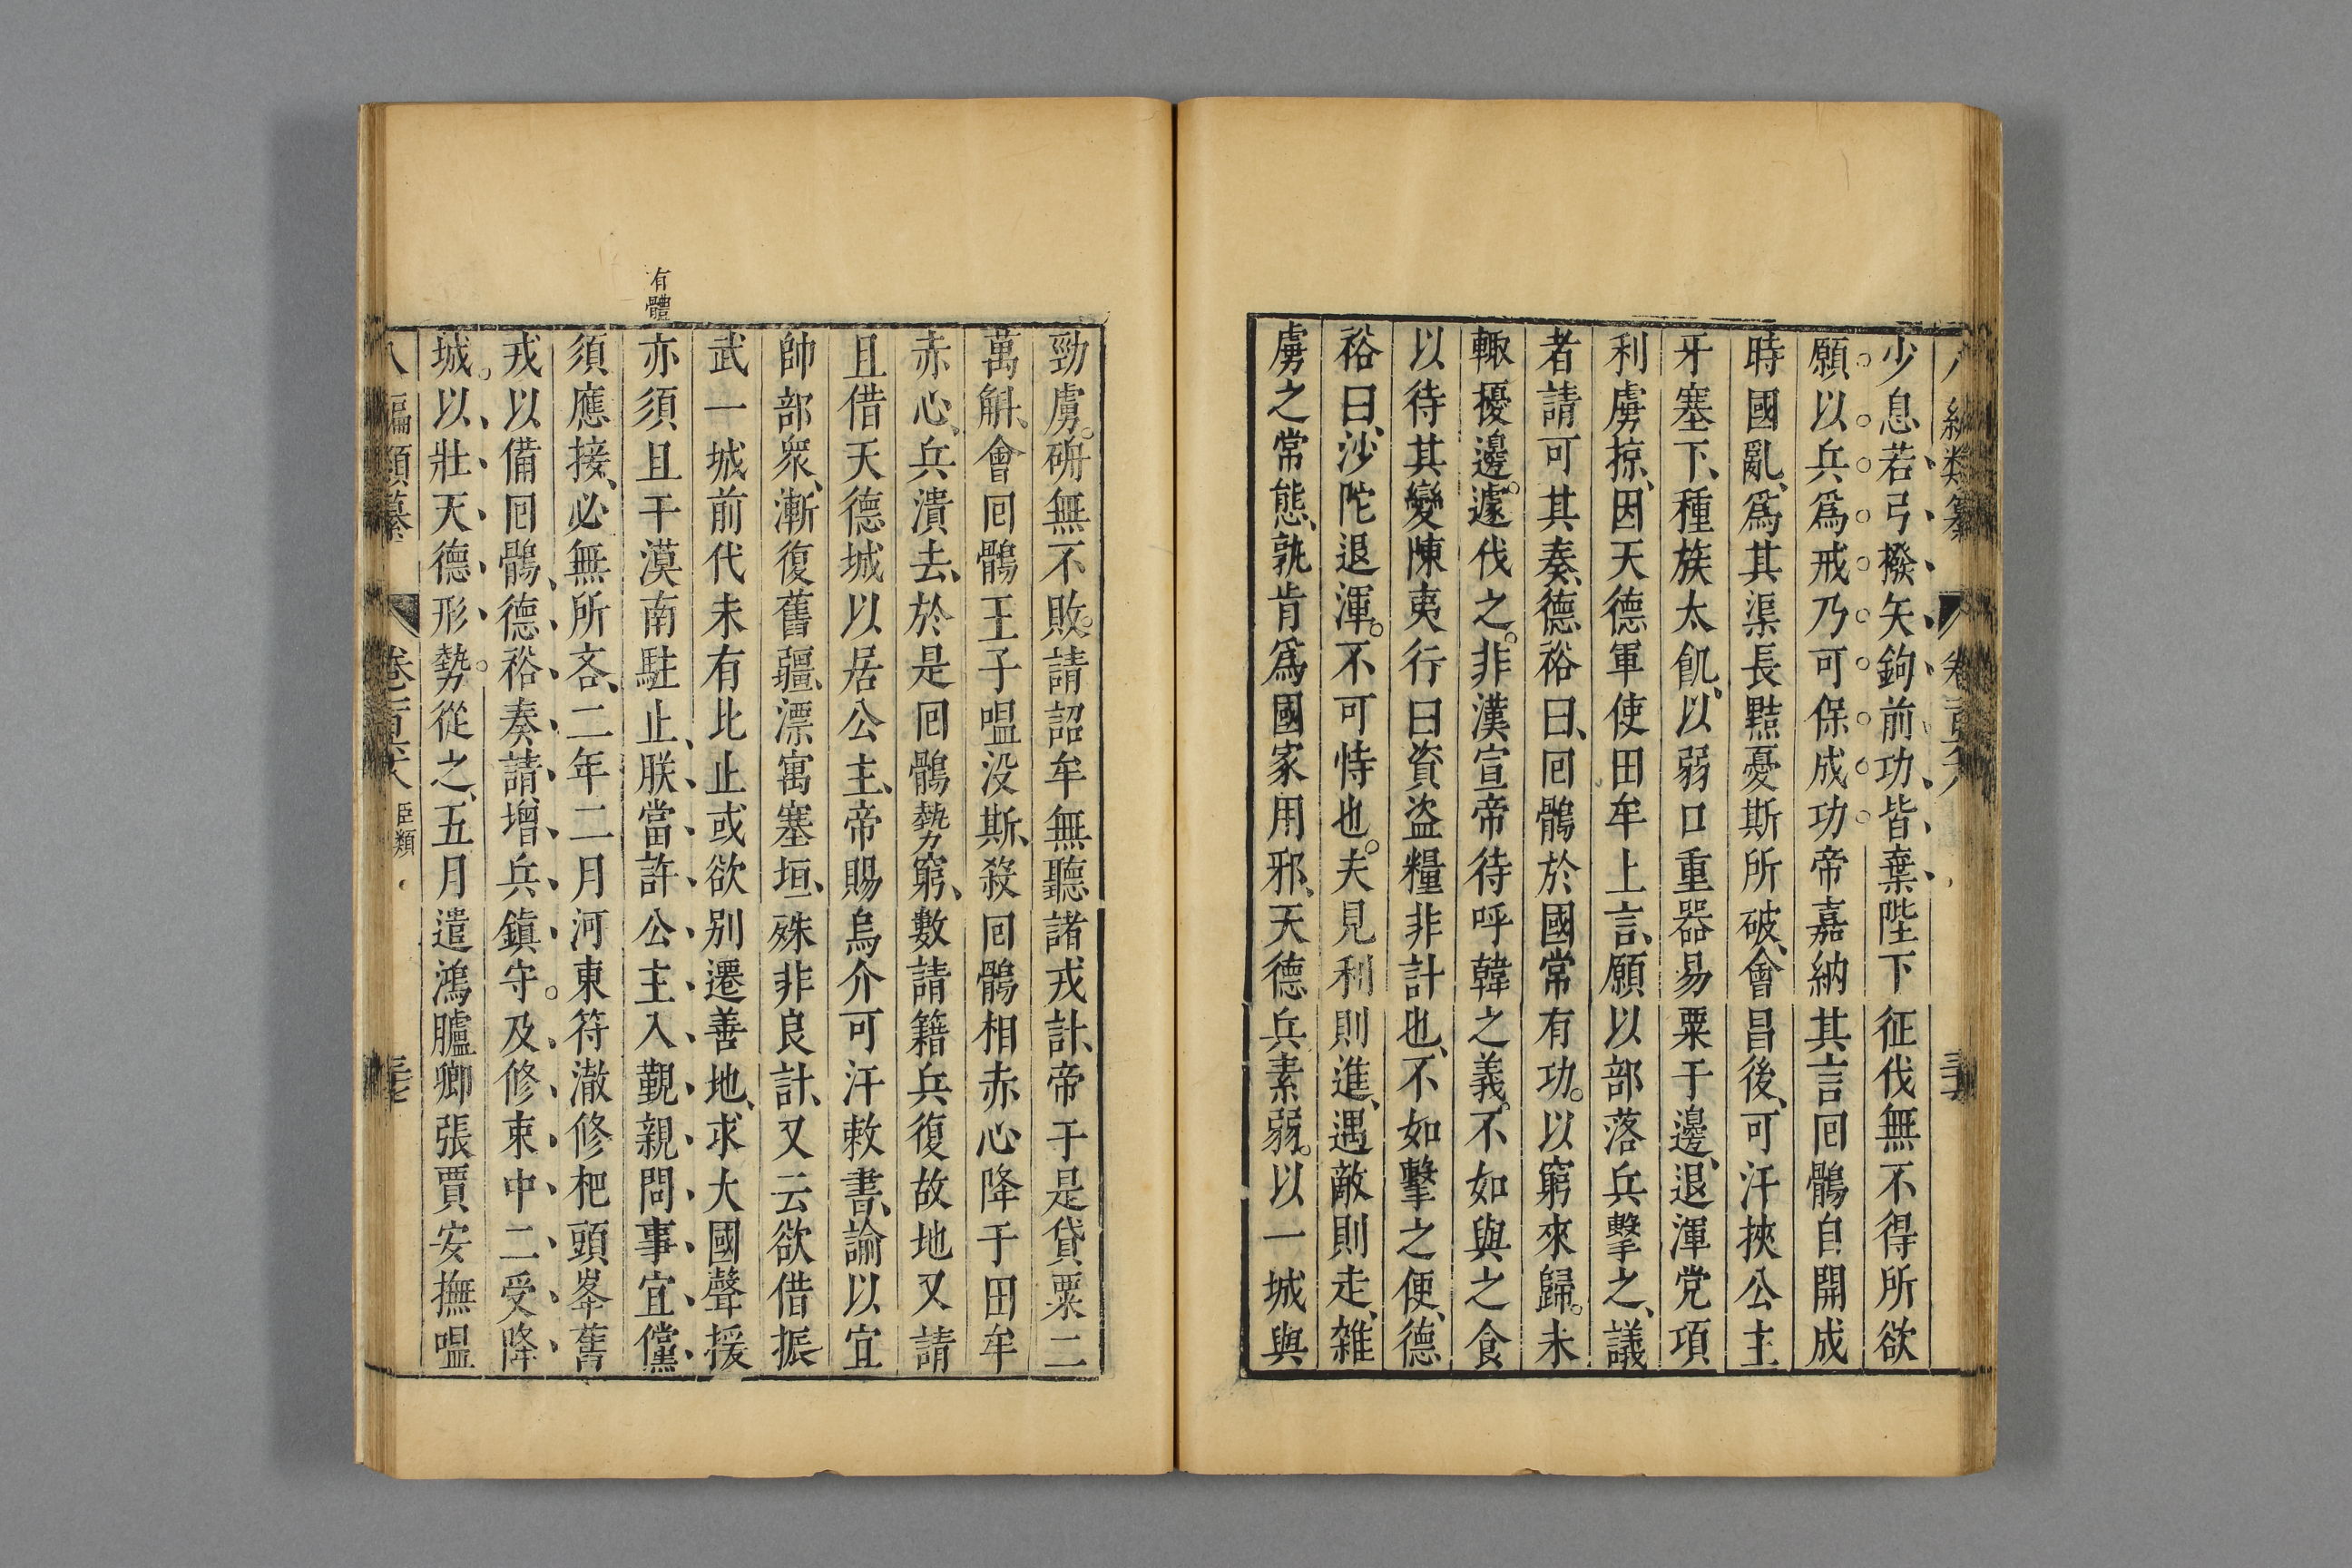 少息若弓撥矢鉤前功皆棄陛下征伐無不得所欲
願以兵爲戒乃可保成功帝嘉納其言回鶻自開成
時國亂、爲其渠長黠戛斯所破、會昌後、可汗挾公主
牙塞下、種族太飢、以弱口重器易粟于邊、退渾党項
利虜掠、因天德軍使田牟上言、願以部落兵擊之、議
者請可其奏、德裕曰、回鶻於國常有功。以窮來歸。未
輒擾邊。遽伐之。非漢宣帝待呼韓之義。不如與之食
以待其變陳夷行曰資盜糧非計也、不如擊之便、德
裕曰、沙陀退渾。不可恃也。夫見利則進、遇敵則走、雜
虜之常態、孰肯爲國家用邪、天德兵素弱。以一城與
勁虜。确無不敗。請詔牟無聽諸戎計、帝于是貸粟二
萬斛、會回鶻王子嗢沒斯、殺回鶻相赤心降于田牟
赤心、兵潰去、於是回鶻勢窮、數請籍兵復故地又請
且借天德城以居公主、帝賜烏介可汗敕書、諭以宜
帥部眾、漸復舊疆、漂寓塞垣、殊非良計、又云欲借振
武一城前代未有比止或欲別遷善地、求大國聲援
有體
亦須且于漠南駐止、朕當許公主入覲親問事宜儻
須應接、必無所吝、二年二月河東符澈修杷頭峯舊
戎以備回鶻、德裕奏請增兵鎮守。及修東中二受降
城。以壯天德形勢。從之、五月遣鴻臚卿張賈安撫嗢